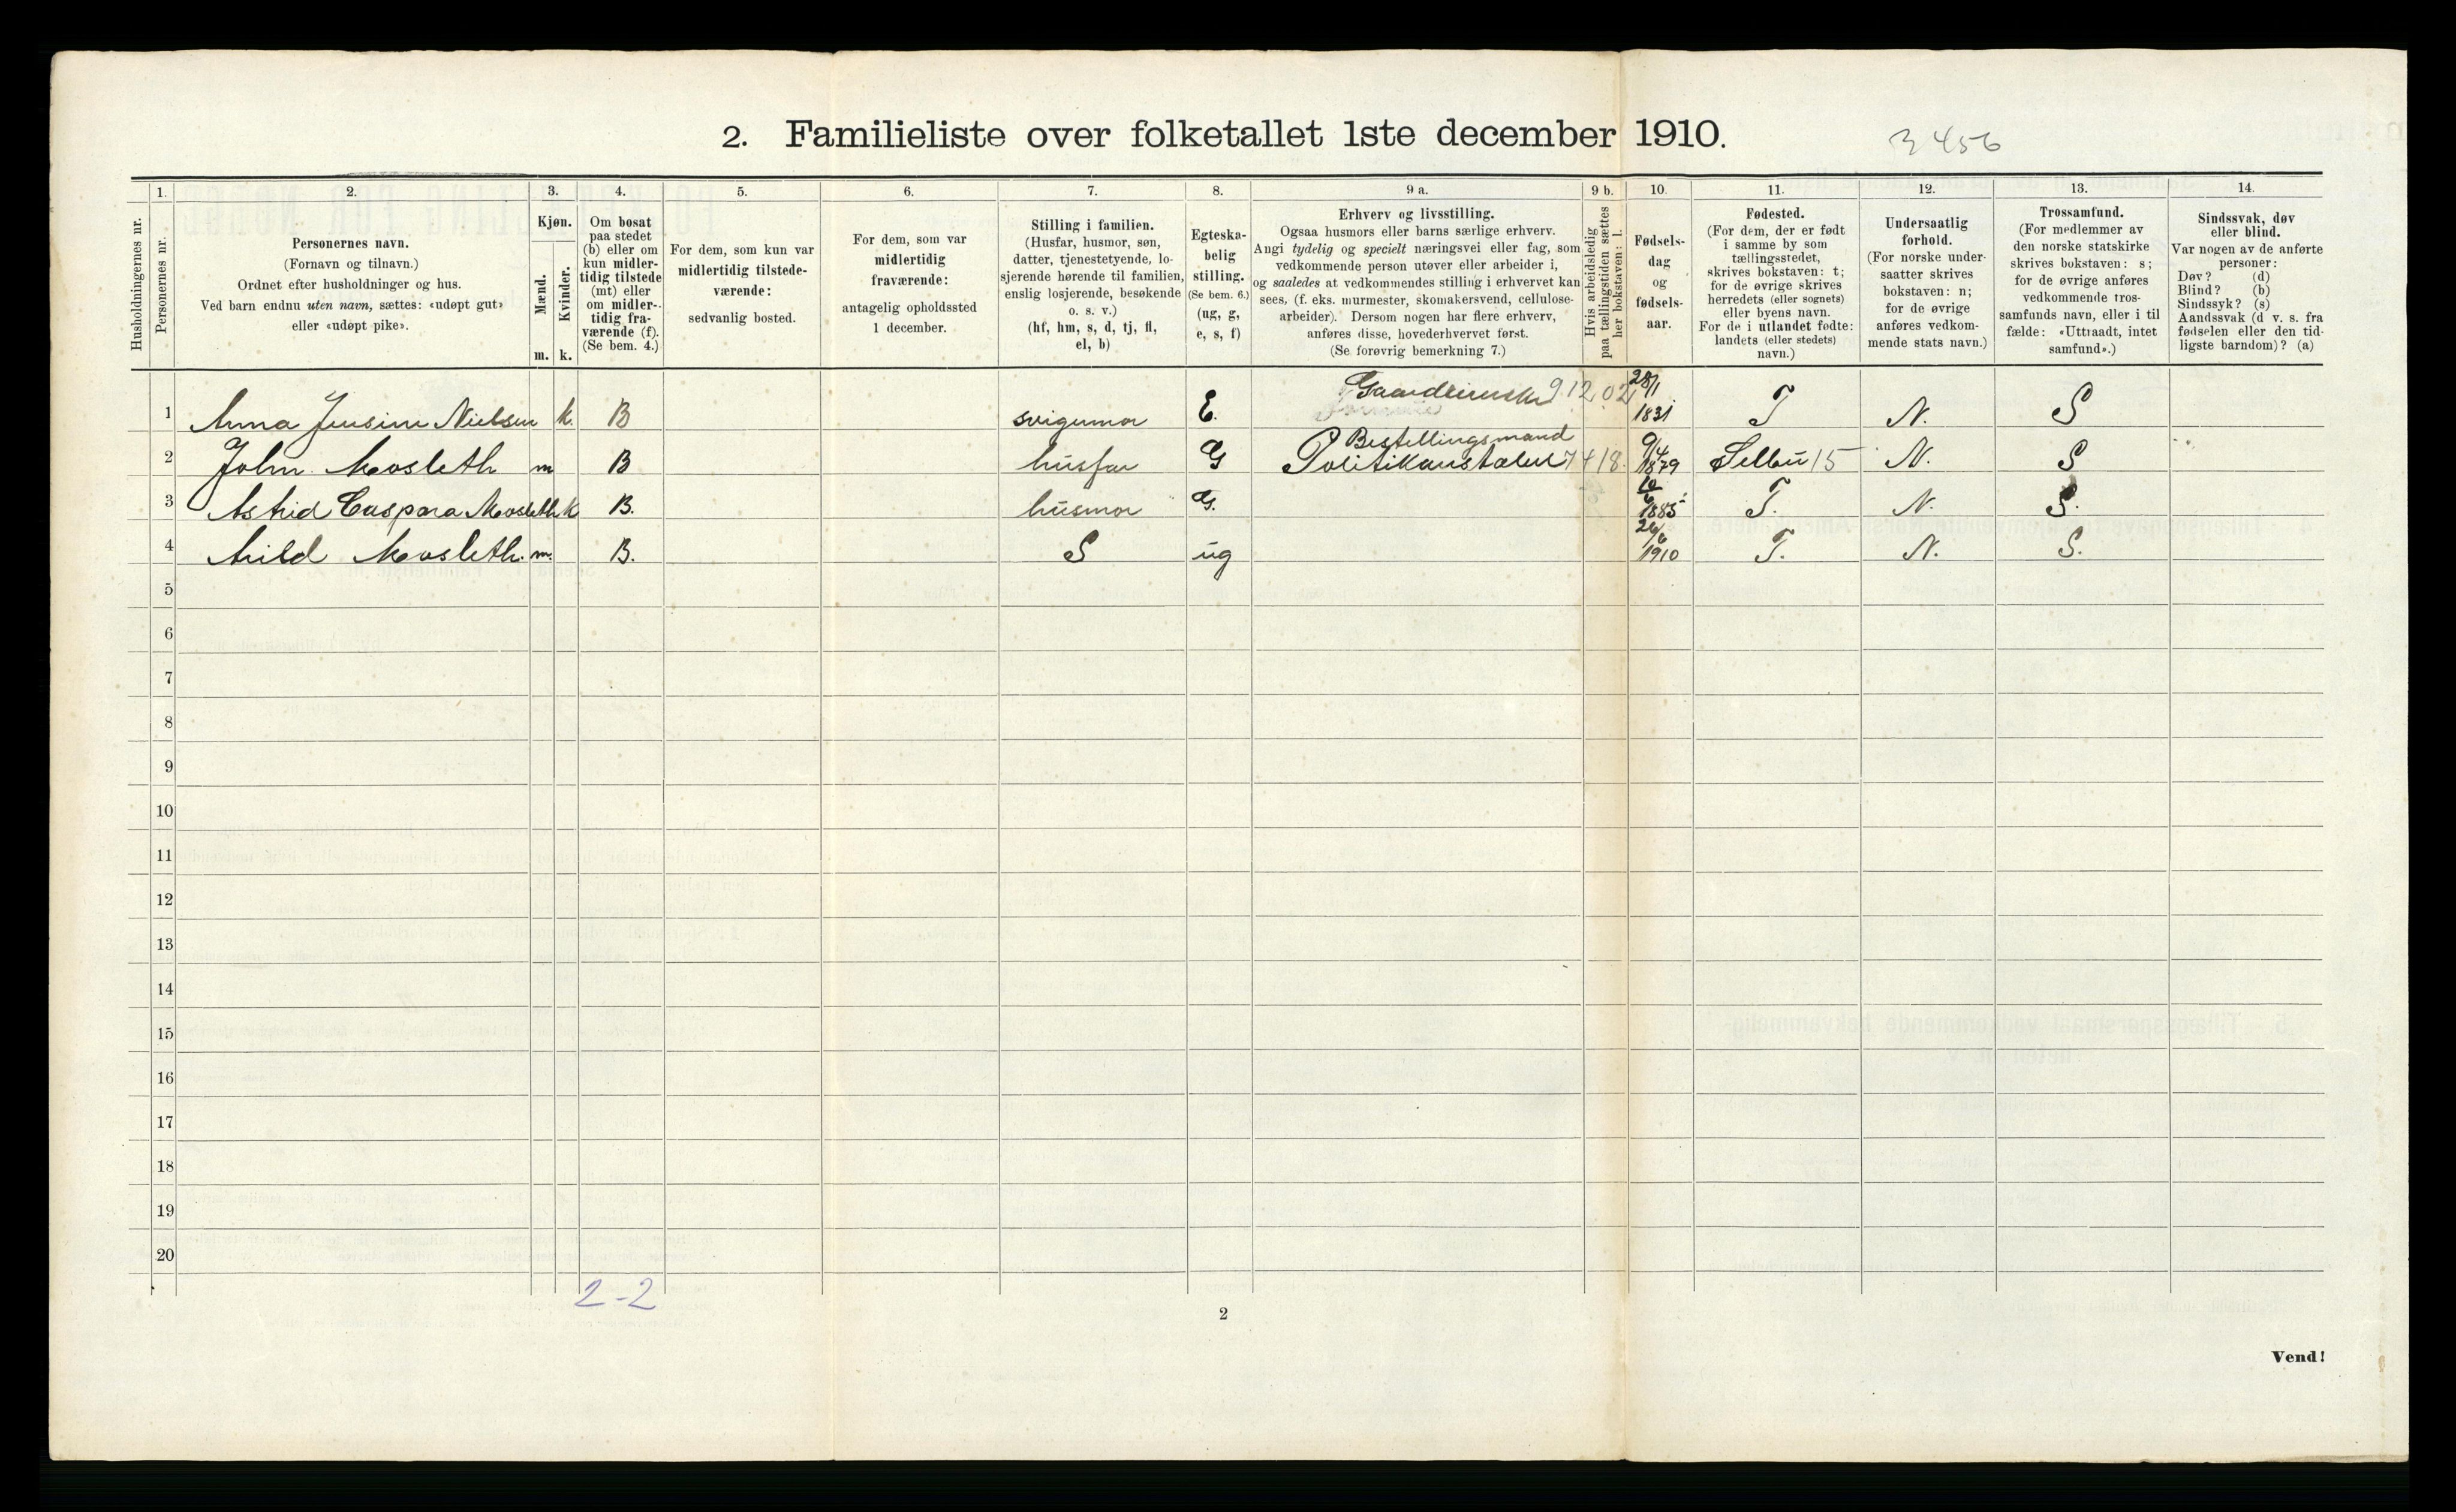 2. Familieliste over folketallet 1ste december 1910.
3456
Husholdningernes nr.
1.
Personernes nr.
2.
Personernes navn.
(Fornavn og tilnavn.)
Ordnet efter husholdninger og hus.
Ved barn endnu uten navn, sættes: «udøpt gut»
eller «udøpt pike».
3.
Kjøn.
Mænd.
Kvinder.
m. k.
4.
Om bosat
paa stedet
(b) eller om
kun midler-
tidig tilstede
(mt) eller
om midler-
tidig fra-
værende (f).
(Se bem. 4.)
5.
For dem, som kun var
midlertidig tilstede-
værende:
sedvanlig bosted.
6.
For dem, som var
midlertidig
fraværende:
antagelig opholdssted
1 december.
7.
Stilling i familien.
(Husfar, husmor, søn,
datter, tjenestetyende, lo-
sjerende hørende til familien,
enslig losjerende, besøkende
o. s. v.)
(hf, hm, s, d, tj, fl,
el, b)
8.
Egteska-
belig
stilling.
(Se bem. 6.)
(ug, g,
e, s, f)
9 a.
Erhverv og livsstilling.
Ogsaa husmors eller barns særlige erhverv.
Angi tydelig og specielt næringsvei eller fag, som
vedkommende person utøver eller arbeider i,
og saaledes at vedkommendes stilling i erhvervet kan
sees, (f. eks. murmester, skomakersvend, cellulose-
arbeider). Dersom nogen har flere erhverv,
anføres disse, hovederhvervet først.
(Se forøvrig bemerkning 7.)
9 b.
Hvis arbeidsledig
paa tællingstiden sættes
her bokstaven: l.
10.
Fødsels-
dag
og
fødsels-
aar.
11.
Fødested.
(For dem, der er født
i samme by som
tællingsstedet,
skrives bokstaven: t;
for de øvrige skrives
herredets (eller sognets)
eller byens navn.
For de i utlandet fødte:
landets (eller stedets)
navn.)
12.
Undersaatlig
forhold.
(For norske under-
saatter skrives
bokstaven: n;
for de øvrige
anføres vedkom-
mende stats navn.)
13.
Trossamfund.
(For medlemmer av
den norske statskirke
skrives bokstaven: s;
for de øvrige anføres
vedkommende tros-
samfunds navn, eller i til
fælde: «Uttraadt, intet
samfund».)
14.
Sindssvak, døv
eller blind.
Var nogen av de anførte
personer:
Døv? (d)
Blind? (b)
Sindssyk? (s)
Aandssvak (d v. s. fra
fødselen eller den tid-
ligste barndom)? (a)
1 Anna Jensine Nielsen k. B svigermor E. 912,02 28/1 1831 T N. S
Bestellingsmand
2 John Mosleth m B husfar G Politikonstabel 7418 9/4 1879 Selbu 15 N. S
3 Astrid Caspara Mosleth k B. husmor G. 10/6 1885 T. N. S.
4 Arild Mosleth. m. B. S ug 26/6 1910 T. N. S.
5
6
7
8
9
10
11
12
13
14
15
16
17
18
19
20
2-2
2
Vend!